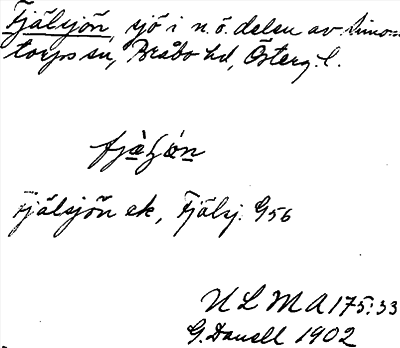 Fjälsjön, sjö i n. ö. delen av Simon-
torps sn, Bråbo hd, Österg. l.
Fjälsjön ek, Fjälsj. G56
ULMA 175:33
G. Danell 1902